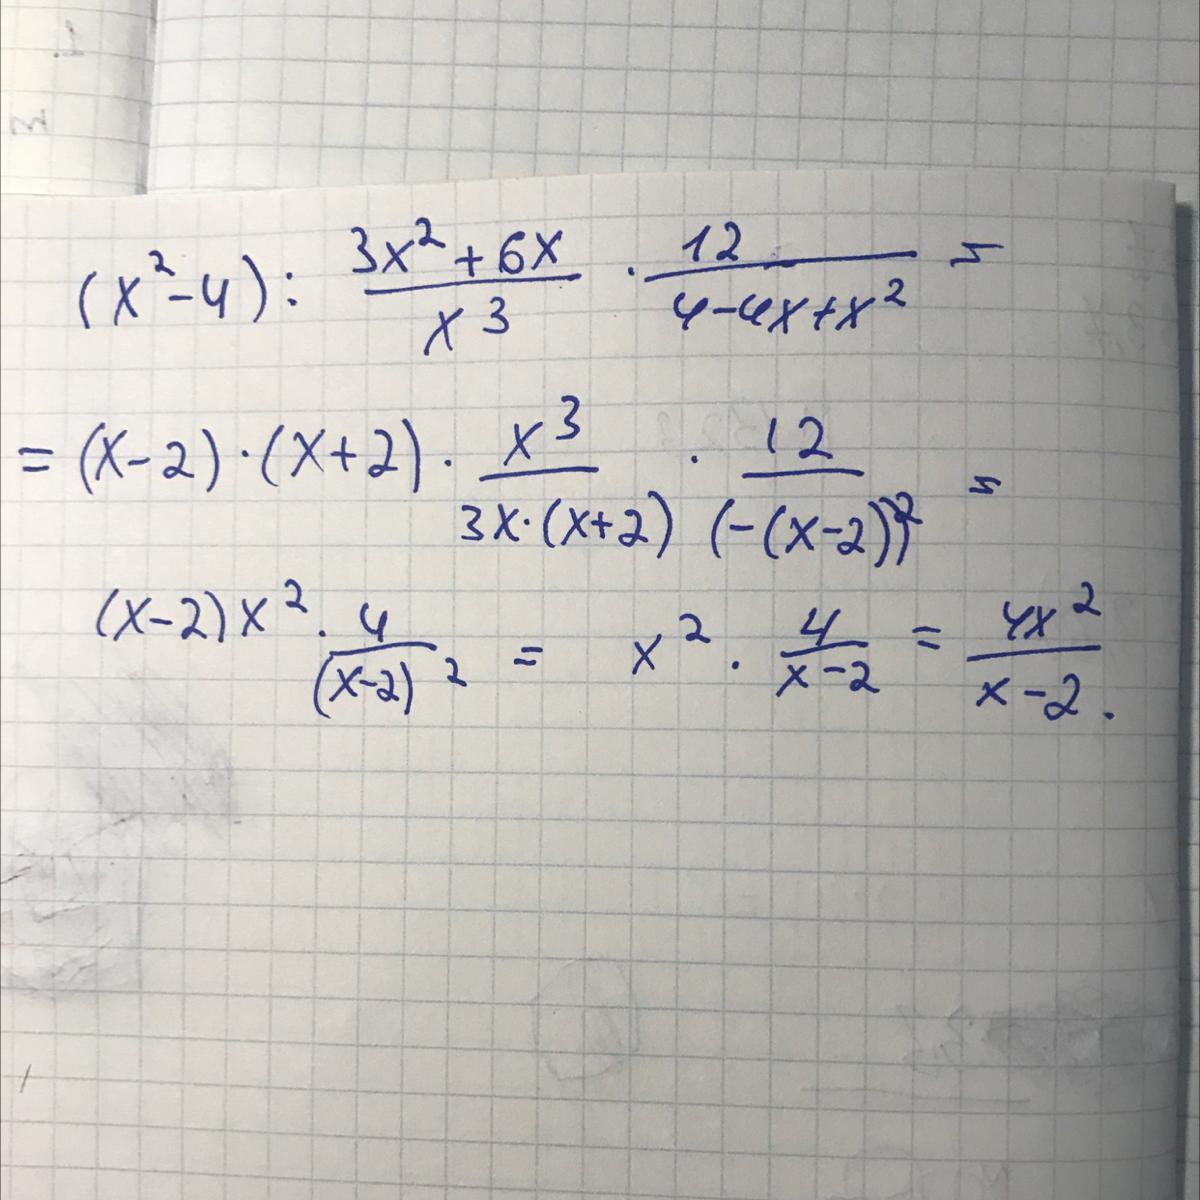 (x²-4): 3x²+6x/x³ · 12/4-4x+x² =
= (x-2)·(x+2)· x³/3x·(x+2) · 12/(-(x-2))² =
(x-2)x² · 4/(x-2)² = x² · 4/x-2 = 4x²/x-2.